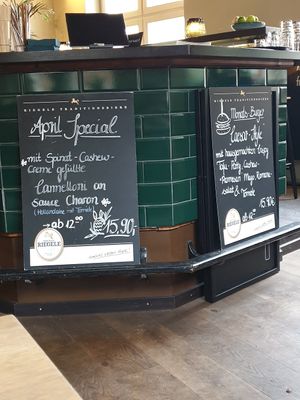 RIEGELE TRADITIONSBIERE
April Special
mit Spinat-Cashew-
creme gefüllte
Cannelloni an
Sauce Choron
(Hollandaise mit Tomate)
ab 12°°
15,90,-
RIEGELE
RIEGELE TRADITIONSBIERE
Monats Burger
Caesar-Style
mit hausgemachtem Crispy
Tofu-Patty, Cashew-
Parmesan, Mayo, Romana-
salat & Tomate
ab 12°°
15,90
RIEGELE